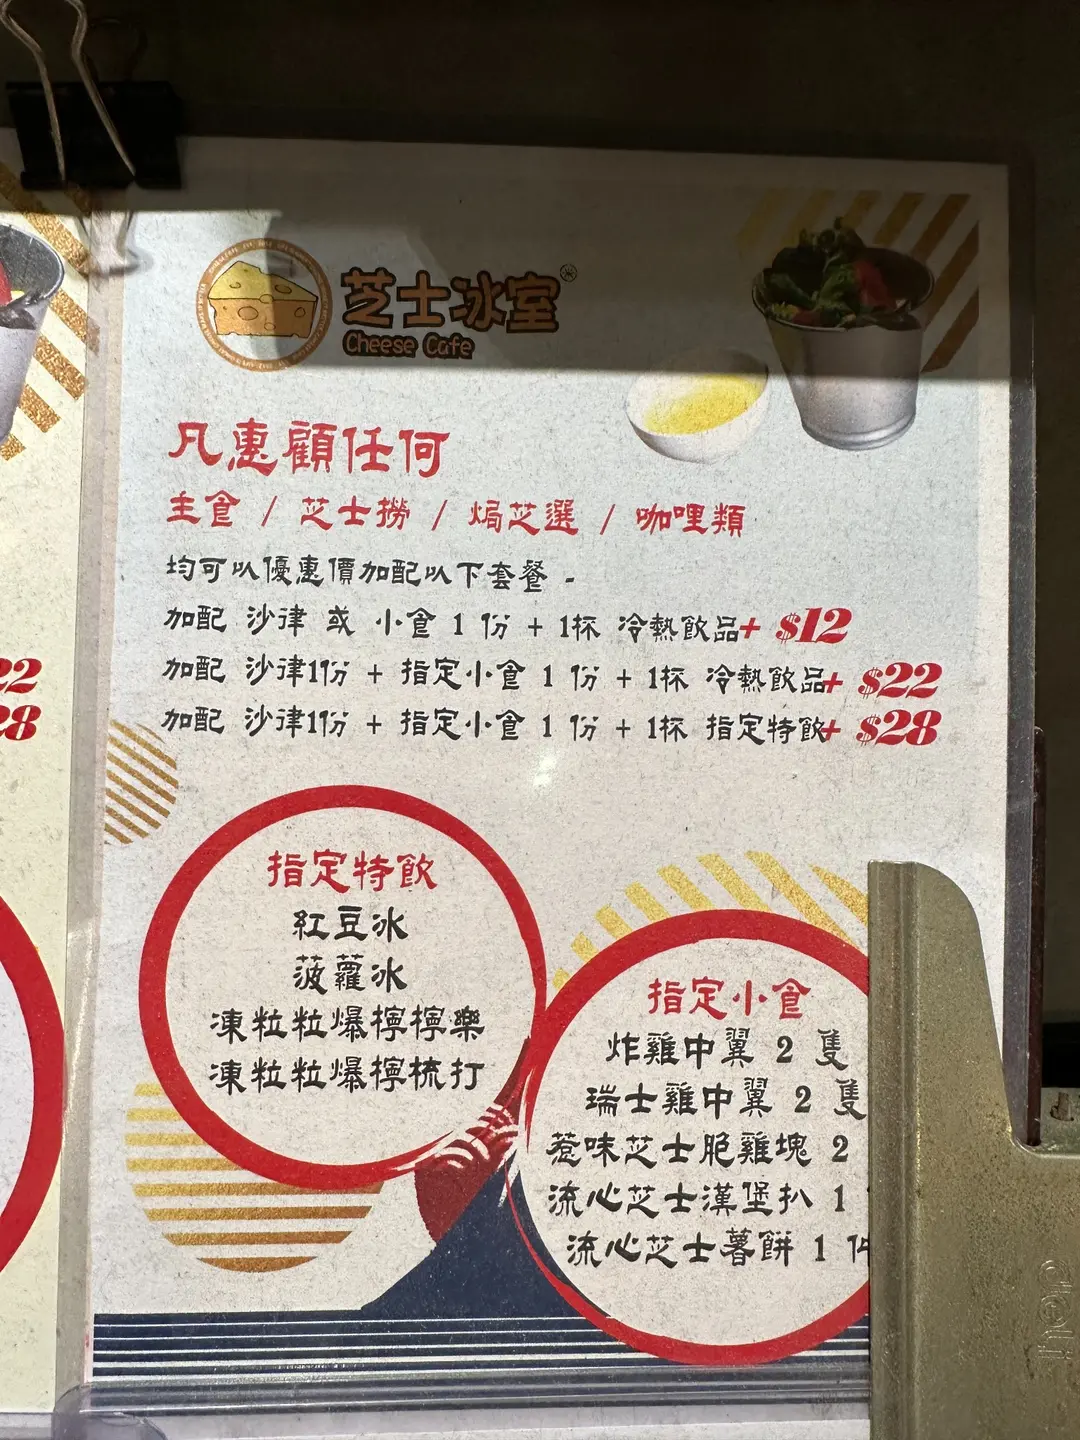 芝士冰室
Cheese Cafe
凡惠顧任何
主食 / 芝士撈 / 焗芝選 / 咖哩類
均可以優惠價加配以下套餐 -
加配 沙律 或 小食 1 份 + 1杯 冷熱飲品+ $12
加配 沙律1份 + 指定小食 1 份 + 1杯 冷熱飲品+ $22
加配 沙律1份 + 指定小食 1 份 + 1杯 指定特飲+ $28
22
28
指定特飲
紅豆冰
菠蘿冰
凍粒粒爆檸檸樂
凍粒粒爆檸梳打
指定小食
炸雞中翼 2 隻
瑞士雞中翼 2 隻
惹味芝士脆雞塊 2
流心芝士漢堡扒 1
流心芝士薯餅 1 件
deli